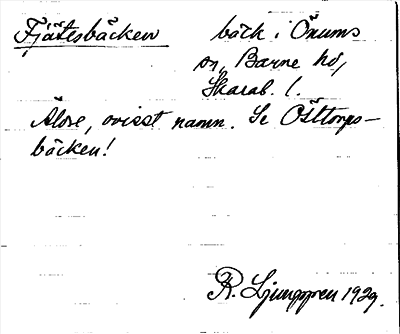 Fjätesbäcken bäck i Önums
sn, Barne hd,
Skarab. l.
Äldre, ovisst namn. Se Östtorps-
bäcken!
R. Ljunggren 1929.